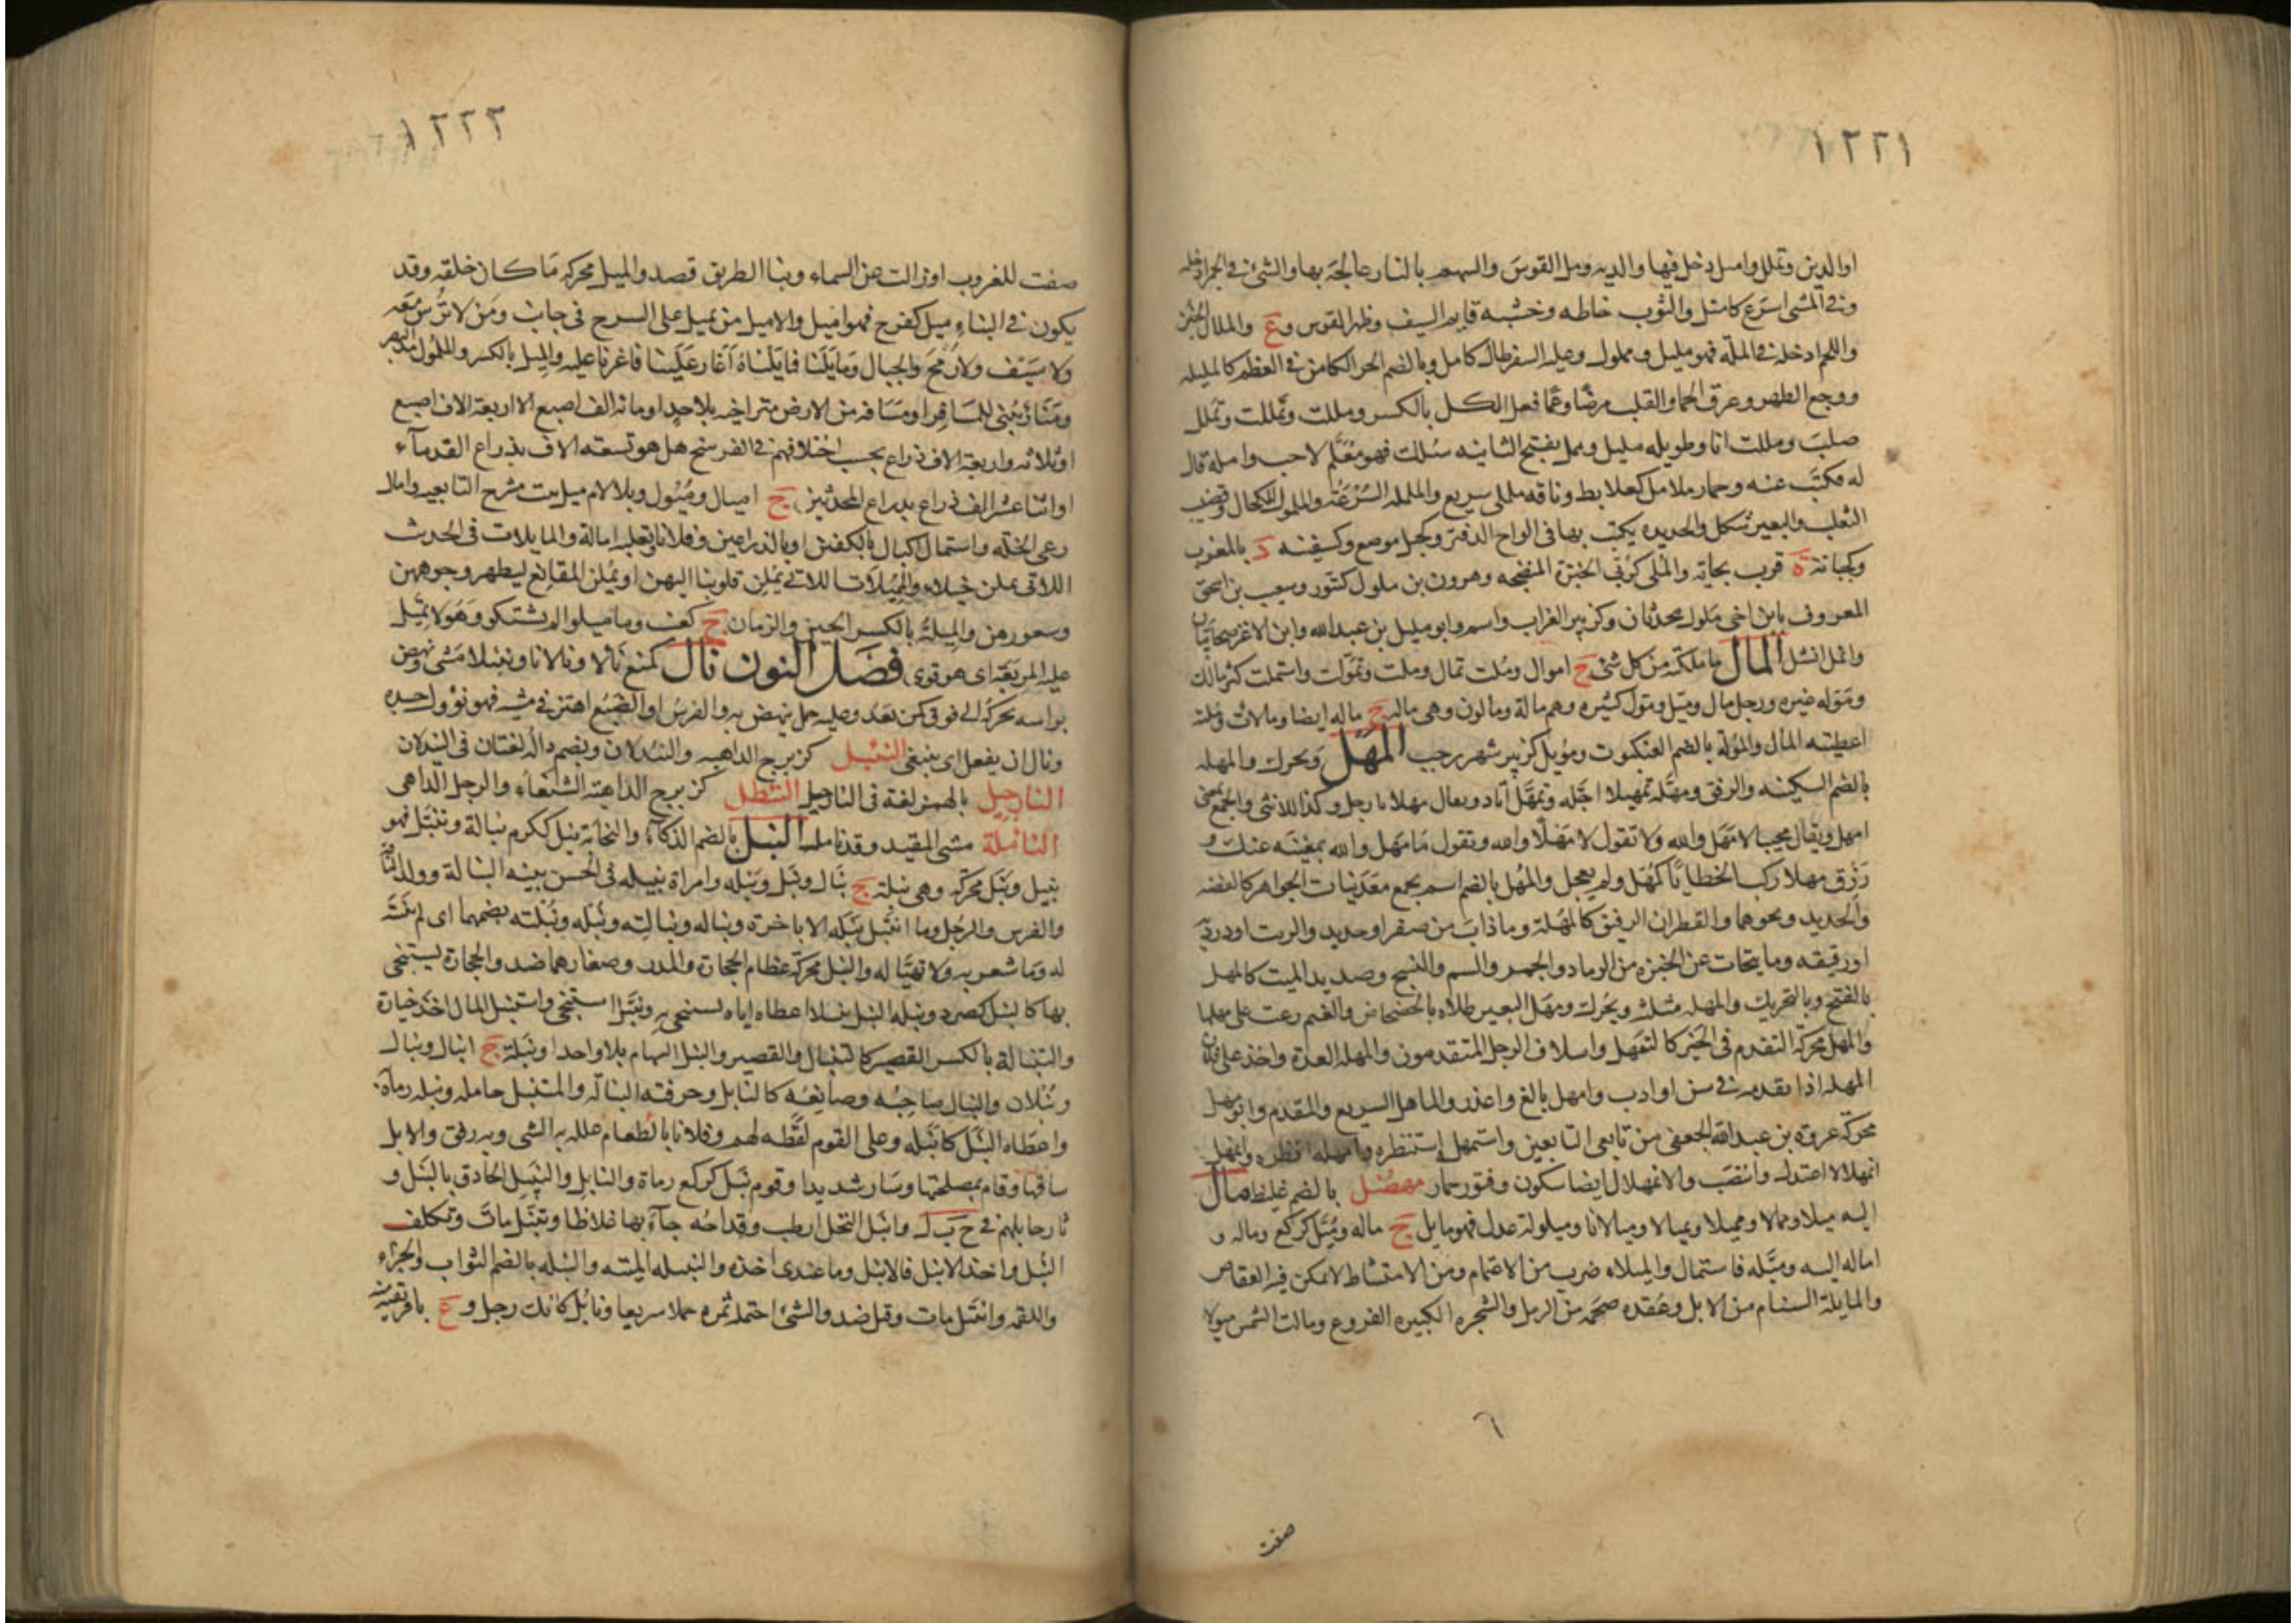 ١٢٢١
او الدين وتملل وامتل دخل فيها والدية ومل القوس والسهم بالنار عالجه بها والشئ في الجمر ادخله
وفي المشى اسرع كامتل والثوب خاطه وخشبة قايم السيف وظهر القوس وع والملال
واللحم ادخله في الملة فهو مليل ومملول وعليه السفر طال كامل وبالضم الحر الكامن في العظم كالمليلة
ووجع الظهر وعرق الحما والتقلب مرضا وغما فعل الكل بالكسر ومللت وتمللت وتملل
صلب ومللت انا وطويله مليل وممل بفتح الثانيه سلك فهو معلم لاحب وامله قال
له فكتب عنه وحمار ملامل كعلابط وناقه مللى سريع والململه السرعة والملمول المكحال وقضيب
الثعلب والبعير شكل والحديده يكتب بها في الواح الدفتر وكجبل موضع وكسفينه د بالمغرب
وكجبانة ة قرب بجاية والملى كربى الخبزة المنضجه وهرون بن ملول كتنور وسعيب بن اسحق
المعروف بابن اخى ملول محدثان وكزبير الغراب واسم وابو مليل بن عبد الله وابن الاغر صحابيان
وانمل انسل المال ما ملكته من كل شئ ج اموال وملت تمال وملت وتمولت واستملت كثر مالك
وموله غيره ورجل مال وميل ومول كثيره وهم مالة ومالون وهى ماله ج ماله ايضا ومالات وملته
اعطيته المال والمولة بالضم العنكبوت ومويل كزبير شهر رجب المهل ويحرك والمهله
بالضم السكينه والرفق ومهله تمهيلا اجله وتمهل اتاد ويقال مهلا يا رجل وكذا للانثى والجمع بمعنى
امهل ويقال مجيبا لا مهل والله ولا تقول لا مهلا والله وتقول ما مهل والله بمغنية عنك و
رزق مهلا ركب الخطايا كمهل ولم يعجل والمهل بالضم اسم يجمع معدنيات الجواهر كالفضه
والحديد ونحوهما والقطران الرقيق كالمهلة وما ذاب من صفر او حديد والزيت او درديه
او رقيقه وما يتحات عن الخبزه من الرماد والجمر والسم والقيح وصديد الميت كالمهل
بالفتح وبالتحريك والمهله مثلثه ويحرك ومهل البعير طلاه بالخضخاض والغنم رعت على مهلها
والمهل محركة التقدم في الخير كالتمهل واسلاف الرجل المتقدمون والمهله العدة واخذ على فلان
المهله اذا تقدمه في سن او ادب وامهل بالغ واعذر والماهل السريع والمتقدم وابو مهل
محركة عروة بن عبد الله الجعفى من تابعى التابعين واستمهله استنظره وامهله انظره واتمهل
اتمهلالا اعتدل وانتصب والاتمهلال ايضا سكون وفتور حمار مهصل بالضم غليظ مال
اليه ميلا وممالا ومميلا وتميالا وميلانا وميلولة عدل فهو مايل ج ماله وميل كركع وماله و
اماله اليه وميله فاستمال والميلاء ضرب من الاعتمام ومن الامتشاط لا يمكن فيه العقاص
والمايلة السنام من الابل وعقده ضخمه من الرمل والشجره الكبيره الفروع ومالت الشمس ميولا
٦
صفت
١٢٢٢
صفت للغروب او زالت عن السماء وبنا الطريق قصد والميل محركه ما كان خلقه وقد
يكون في البناء ميل كفرح فهو اميل والاميل من يميل على السرج في جانب ومن لا ترس معه
ولا سيف ولا رمح والجبان ومايلنا فمايلناه اغار علينا فاغرنا عليه والميل بالكسر والملمول
ومنار يبنى للمسافر او مسافه من الارض متراخيه بلا حد او ماية الف اصبع الا اربعة الاف اصبع
او ثلاثه او اربعة الاف ذراع بحسب اختلافهم في الفرسخ هل هو تسعة الاف بذراع القدماء
او اثنا عشر الف ذراع بذراع المحدثين ج اميال وميول وبلالام ميل بنت مشرح التابعيه وامال
رعى الخلة واستمال اكتال بالكفين او بالذراعين وفلانا وبقلبه امالة والمايلات في الحديث
اللاتى يملن خيلاء والمميلات اللاتى يملن قلوبنا اليهن او يملن المقانع ليظهر وجوههن
وشعورهن والميلة بالكسر الحين والزمان ج كعنب وما ميلوا لم يشكو وهو لا تميل
عليه المربعة اى هو قوى فصل النون نال كمنع نالا ونالانا ونئيلا مشى ونهض
براسه يحركه الى فوق كمن يعدو وعليه حمل ينهض به والفرس او الضبع اهتز في مشيه فهو نؤول احدره
ونال ان يفعل اى ينبغى النئبل كزبرج الداهيه والنئدلان وبضم داله لغتان في النيدلان
النارجيل بالهمز لغة في النارجيل النئطل كزبرج الداهية الشنعاء والرجل الداهى
النأملة مشى المقيد وقد نامل النبل بالضم الذكاء والنجابة نبل ككرم نبالة وتنبل فهو
نبيل ونبل محركة وهى نبلة ج نبال ونبل ونبله وامراة نبيله في الحسن بينة النبالة وولد الناقة
والفرس والرجل وما انتبل نبله الا باخرة ونباله ونبالته ونبله ونبلته بضمهما اى لم ينتبه
له وما شعر به ولا تهيا له والنبل محركة عظام الحجارة والمدر وصغارهما ضد والحجارة يستنجى
بها كالنبل كصرد ونبله النبل تنبيلا اعطاه اياه يستنجى به وتنبل استنجى واستنبل المال اخذ خياره
والتنبالة بالكسر القصير كالتنبال والقصير والنبل السهام بلا واحد او نبلة ج انبال ونبال
ونبلان والنبال صاحبه وصانعه كالنابل وحرفته النبالة والمتنبل حامله ونبله رماه
واعطاه النبل كانبله وعلى القوم لقطه لهم وفلانا بالطعام علله به الشى وبه رفق والابل
ساقها وقام بمصلحتها وسار شديدا وقوم نبل كركع رماة والنابل والنبيل الحاذق بالنبل و
ثار حابلهم في ح ب ل وانبل النخل ارطب وقداحه جاء بها غلاظا وتنبل مات وتكلف
النبل واخذ الانبل فالانبل وما عندى اخذه والنبيله الميتة والنبله بالضم الثواب والجزاء
واللقمه وانتبل مات وقتل ضد والشئ احتمله بمره حملا سريعا ونابل كآنك رجل وع بافريقيه